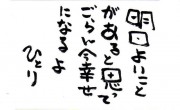 明日よいこと
があると思って
ごらん今幸せ
になるよ
ひとり